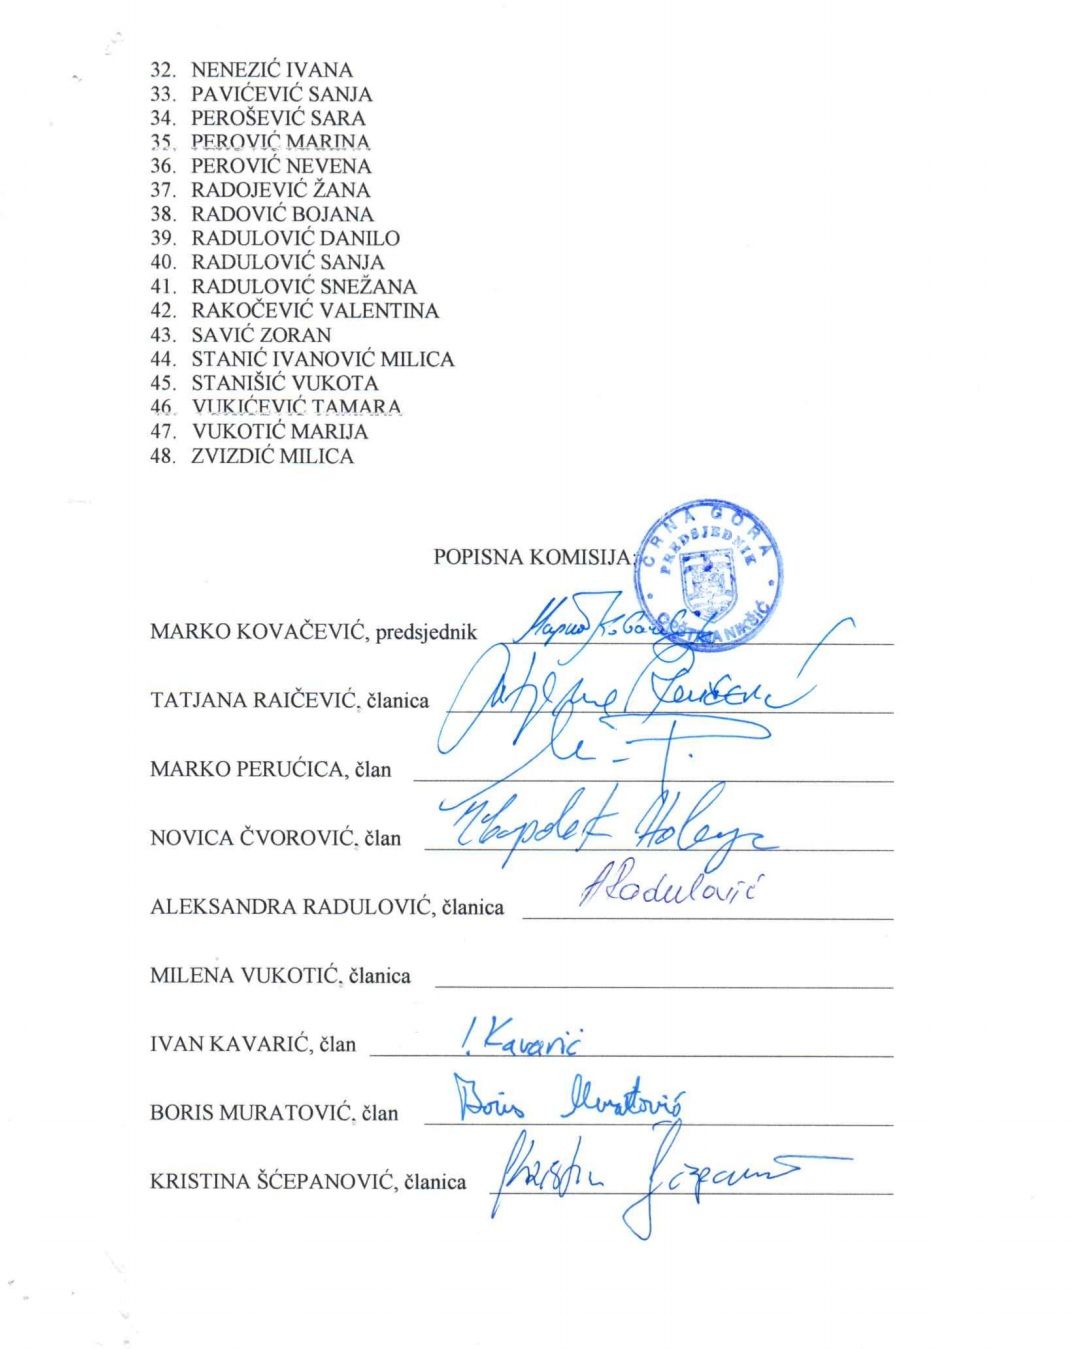 32. NENEZIĆ IVANA
33. PAVIĆEVIĆ SANJA
34. PEROŠEVIĆ SARA
35. PEROVIĆ MARINA
36. PEROVIĆ NEVENA
37. RADOJEVIĆ ŽANA
38. RADOVIĆ BOJANA
39. RADULOVIĆ DANILO
40. RADULOVIĆ SANJA
41. RADULOVIĆ SNEŽANA
42. RAKOČEVIĆ VALENTINA
43. SAVIĆ ZORAN
44. STANIĆ IVANOVIĆ MILICA
45. STANIŠIĆ VUKOTA
46. VUKIĆEVIĆ TAMARA
47. VUKOTIĆ MARIJA
48. ZVIZDIĆ MILICA
CRNA GORA
PREDSJEDNIK
OPŠTINA NIKŠIĆ
POPISNA KOMISIJA:
MARKO KOVAČEVIĆ, predsjednik
TATJANA RAIČEVIĆ, članica
MARKO PERUĆICA, član
NOVICA ČVOROVIĆ, član
ALEKSANDRA RADULOVIĆ, članica ARadulović
MILENA VUKOTIĆ, članica
IVAN KAVARIĆ, član I. Kavarić
BORIS MURATOVIĆ, član Boris Muratović
KRISTINA ŠĆEPANOVIĆ, članica